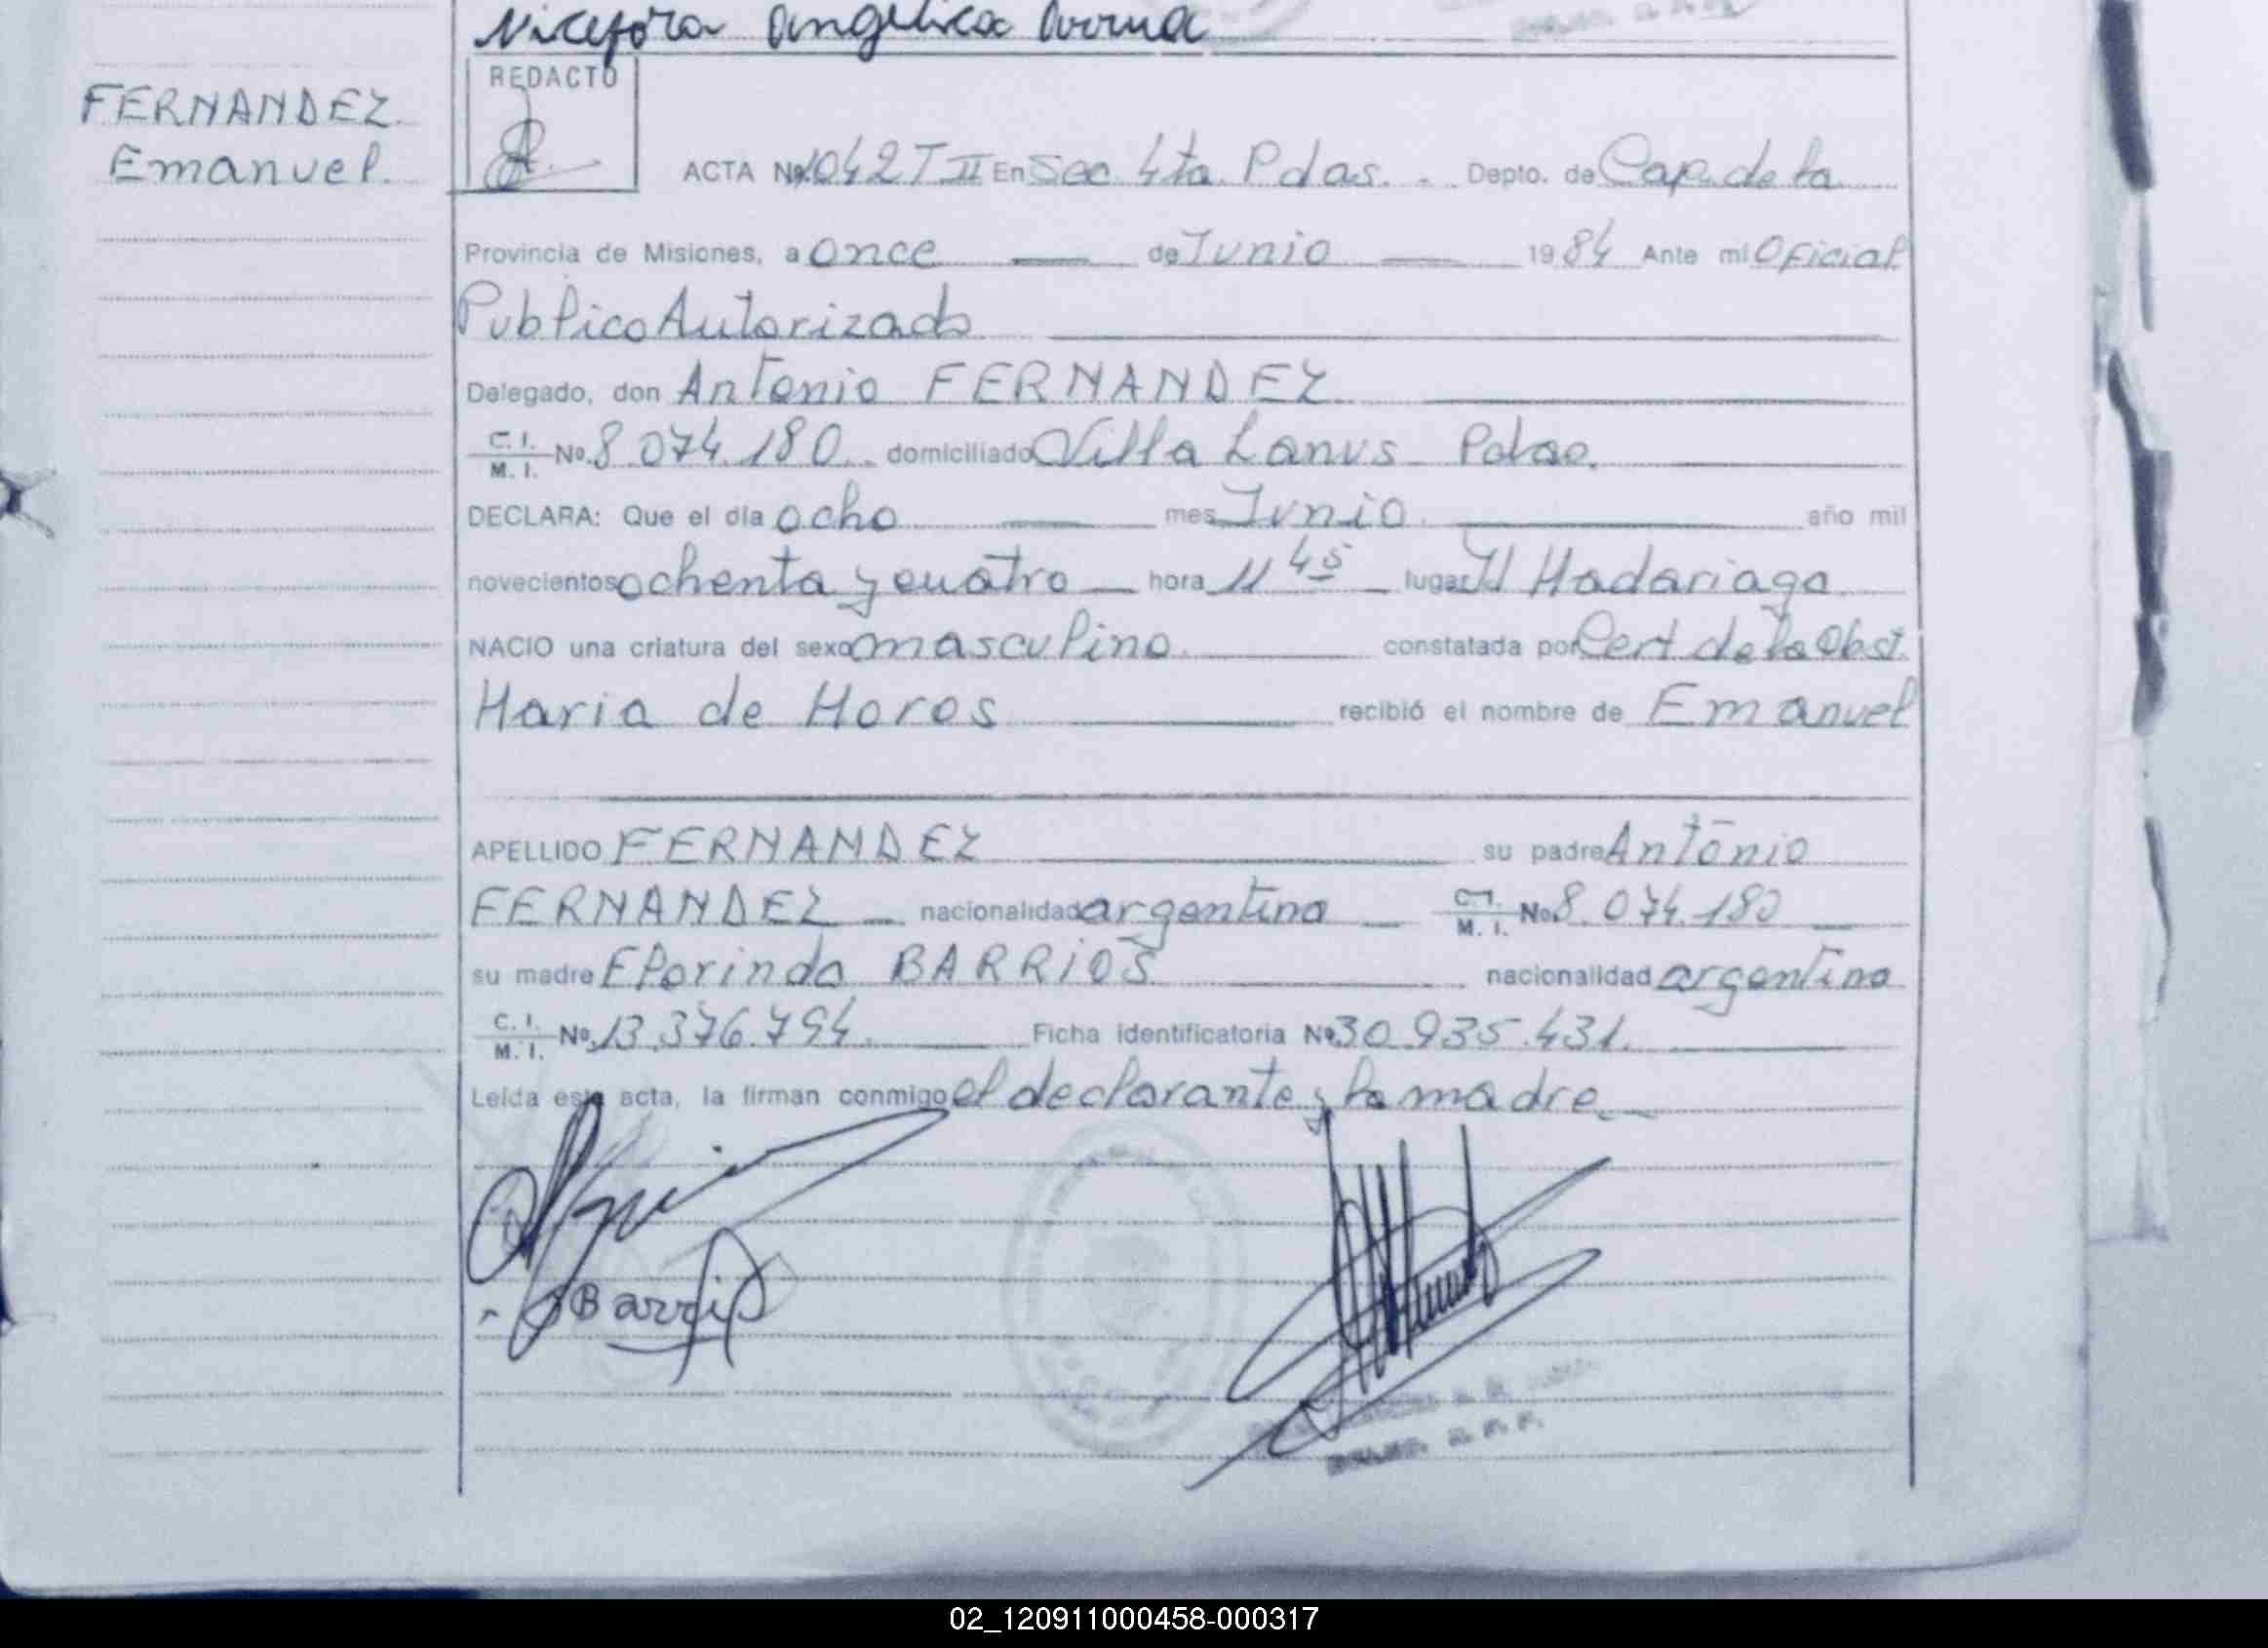 Nicefora Angelica
REDACTO
FERNANDEZ.
Emanuel.
ACTA Nº 1042 T II En Sec. 4ta. Pdas. Depto. de Cap. de la
Provincia de Misiones, a once de Junio 1984 Ante mi Oficial
Publico Autorizado
Delegado, don Antonio FERNANDEZ
C. I. M. I. Nº 8.074.180 domiciliado Villa Lanus Pdas.
DECLARA: Que el día ocho mes Junio año mil
novecientos ochenta y cuatro hora 11 45 lugar H Madariaga
NACIO una criatura del sexo masculino constatada por Cert de la Obst.
Maria de Moros recibió el nombre de Emanuel
APELLIDO FERNANDEZ su padre Antonio
FERNANDEZ nacionalidad argentina C. I. M. I. Nº 8.074.180
su madre Florinda BARRIOS nacionalidad argentina
C. I. M. I. Nº 13.376.794. Ficha identificatoria Nº 30.935.431.
Leída esta acta, la firman conmigo el declarante y la madre.
02_120911000458-000317